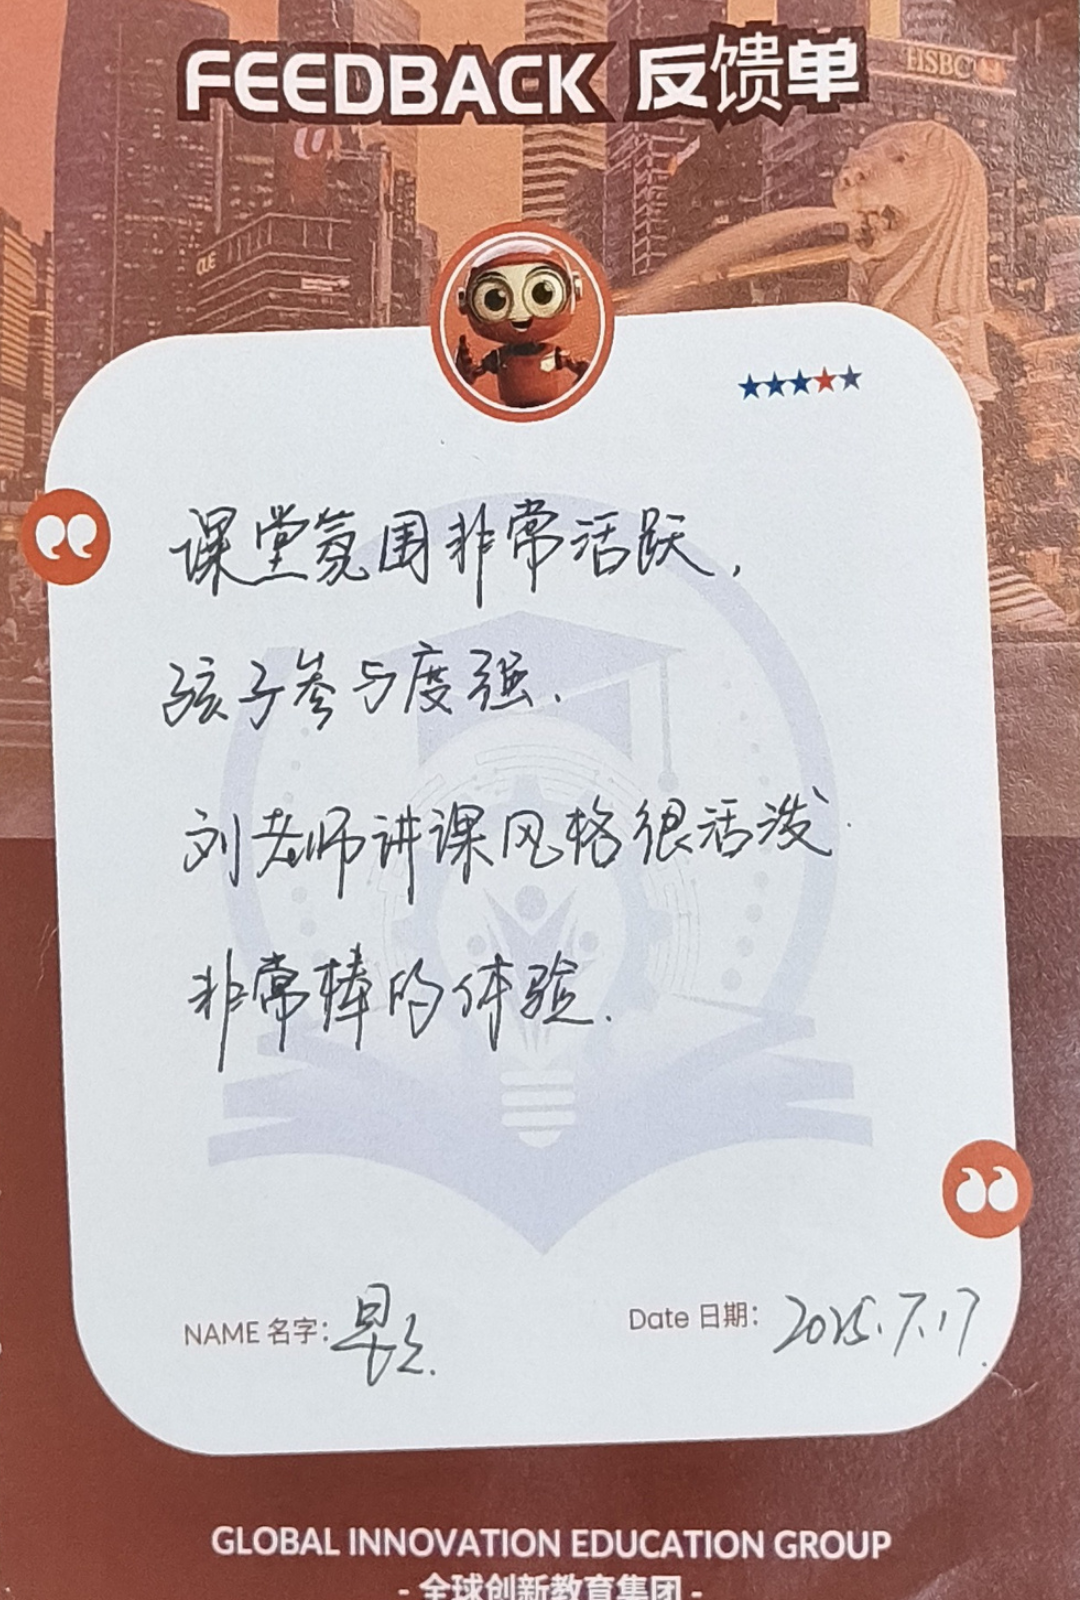 FEEDBACK 反馈单
HSBC
CUE
课堂氛围非常活跃，
孩子参与度强.
刘老师讲课风格很活泼.
非常棒的体验.
NAME 名字：
Date 日期： 2025.7.17.
GLOBAL INNOVATION EDUCATION GROUP
- 全球创新教育集团 -